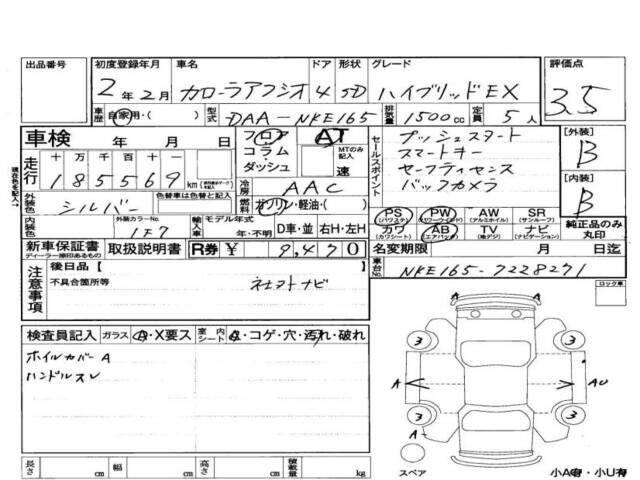 出品番号 初度登録年月 車名 ドア 形状 グレード 評価点
2年2月 カローラアクシオ 4 SD ハイブリッドEX 3.5
車歴 自家用・( ) 型式 DAA-NKE165 排気量 1500cc 定員 5人
車検 年 月 日 フロア コラム ダッシュ AT MTのみ記入 速
走行 十 万 千 百 十 一
185569 km
冷房 AAC
外装色 シルバー 色替車は色替と記入 燃料 ガソリン・軽油・( )
内装色 外装カラーNo. 1F7 輸入車 モデル年式 年・不明 D車・並 右H・左H
セールスポイント
プッシュスタート
スマートキー
セーフティセンス
バックカメラ
[外装] B
[内装] B
PS (パワステ) PW (パワーウィンド) AW (アルミホイル) SR (サンルーフ)
カワ (カワシート) AB (エアバッグ) TV (地デジ) ナビ (ナビゲーション)
純正品のみ丸印
新車保証書 ディーラー捺印あるもの 取扱説明書 R券 ¥ 9,470 名変期限 月 日迄
車台No. NKE165-7228271
注意事項 後日品【
不具合箇所等 社外ナビ
ロック車
検査員記入 ガラス A・X要ス 室内シート A・コゲ・穴・汚れ・破れ
ホイルカバーA
ハンドルスレ
A A
3 3
A AU
3 3
A
スペア 小A有・小U有
長さ cm 幅 cm 高さ cm 積載量 kg